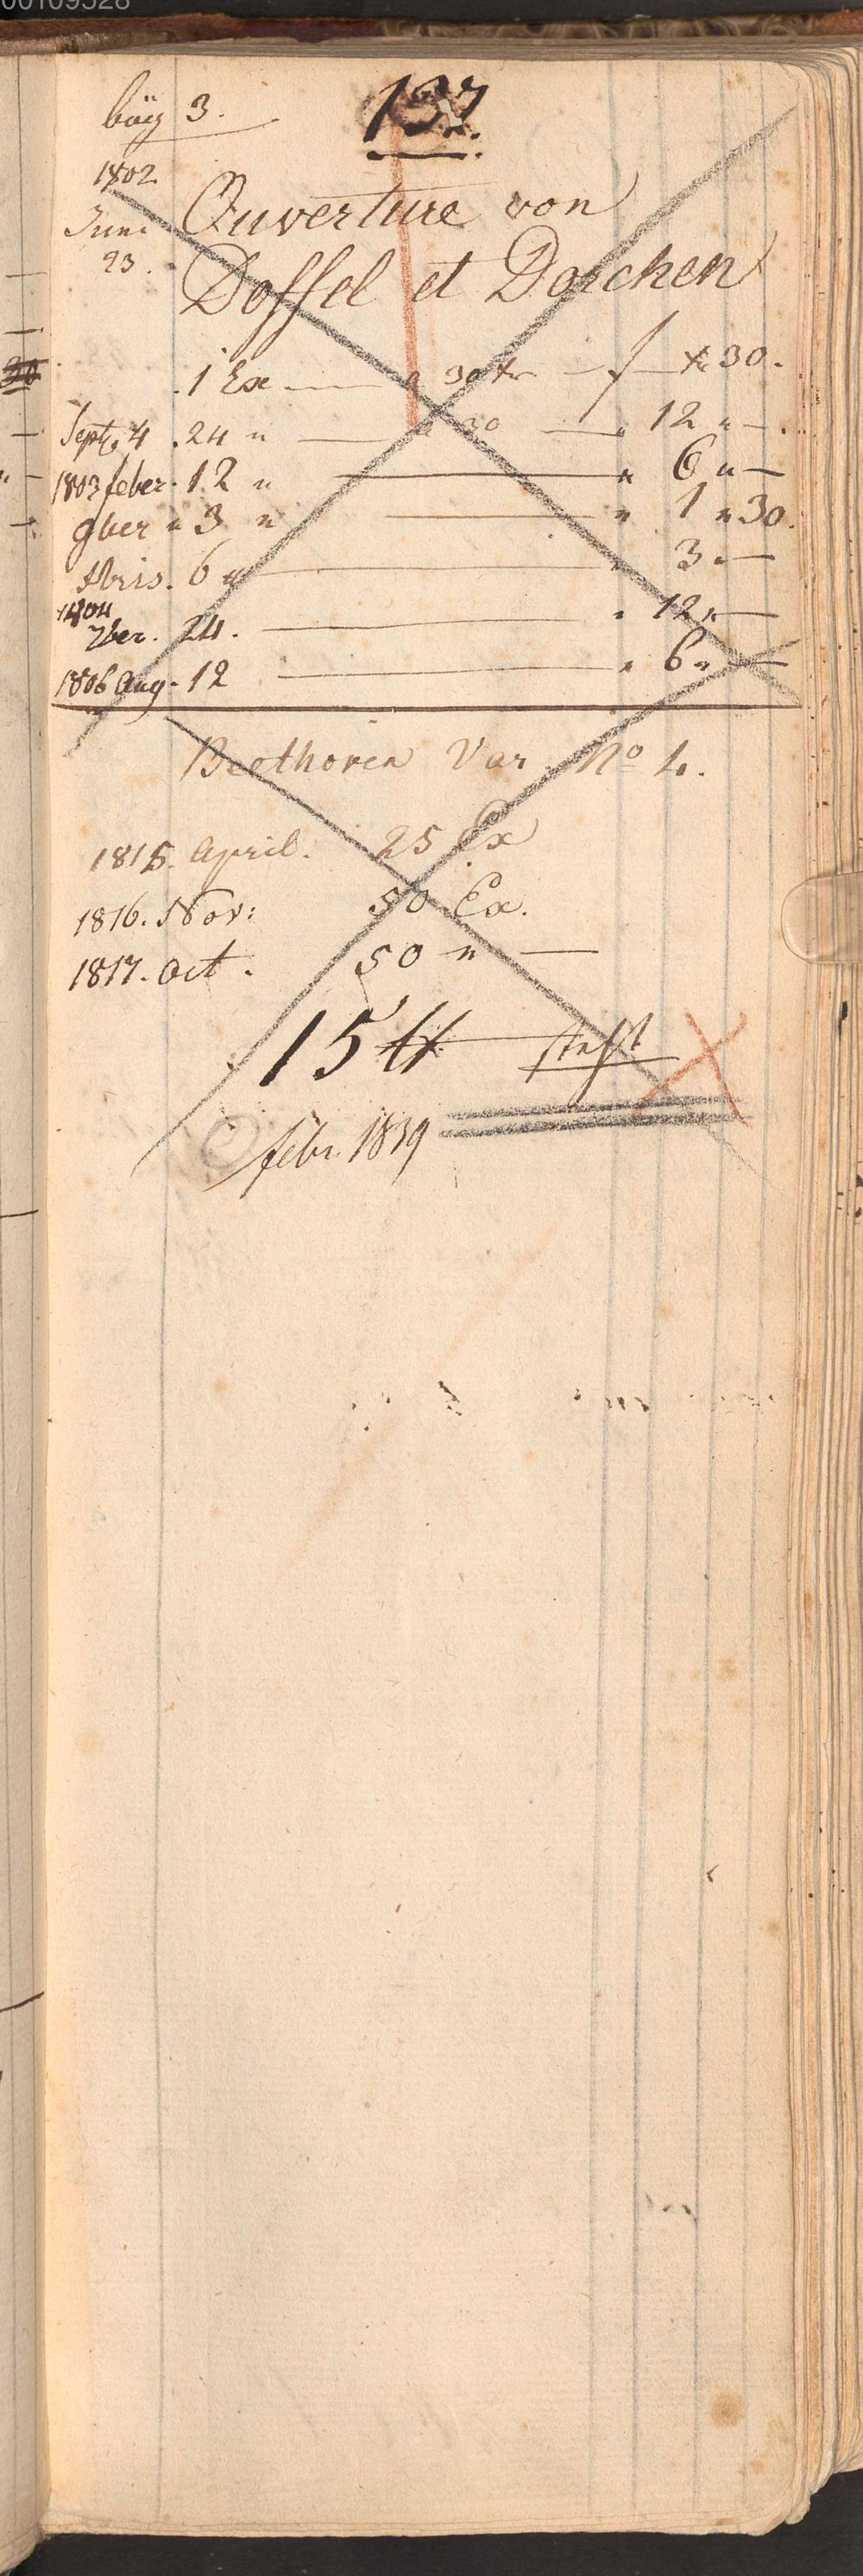 00109528
bög 3.
137.
1802
Juni
23.
Ouverture von
Doffel et Dorchen
1 Ex — a 30 xr — f — xr 30.
Sept. 4 . 24 " — a 30 — " 12 " —.
1803 feber. 12 " — " 6 " —
9ber " 3 " — " 1 " 30.
6 " — " 3 " —
1804
7ber. 24. — " 12 " —
1806 Aug. 12 — " 6 " —
Beethoven Var. No 4.
1815. April. 25 Ex
1816. Nov: 50 Ex.
1817. Oct. 50 " —
15
febr. 1839